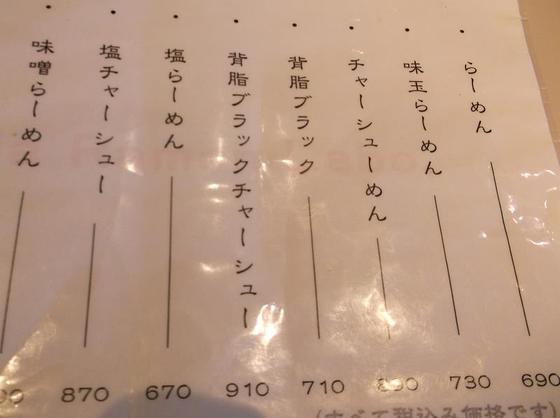 ・らーめん 690
・味玉らーめん 730
・チャーシューめん 890
・背脂ブラック 710
・背脂ブラックチャーシュー 910
・塩らーめん 670
・塩チャーシュー 870
・味噌らーめん
(すべて税込み価格です)